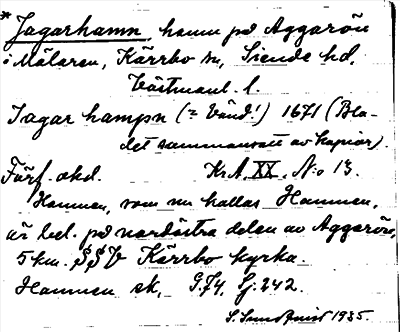 * Jagarhamn, hamn på Aggarön
i Mälaren, Kärrbo sn, Siende hd,
Västmanl. l.
Jagar hampn (= vänd!) 1671 (Bla-
det sammansatt av kopior).
Förf. okd. Kr.A. XX. N:o 13.
Hamnen, som nu kallas Hamnen,
är bel. på nordöstra delen av Aggarön,
5 km. SSV Kärrbo kyrka.
Hamnen ek, G74 Sj. 242.
S. Sundqvist 1935.